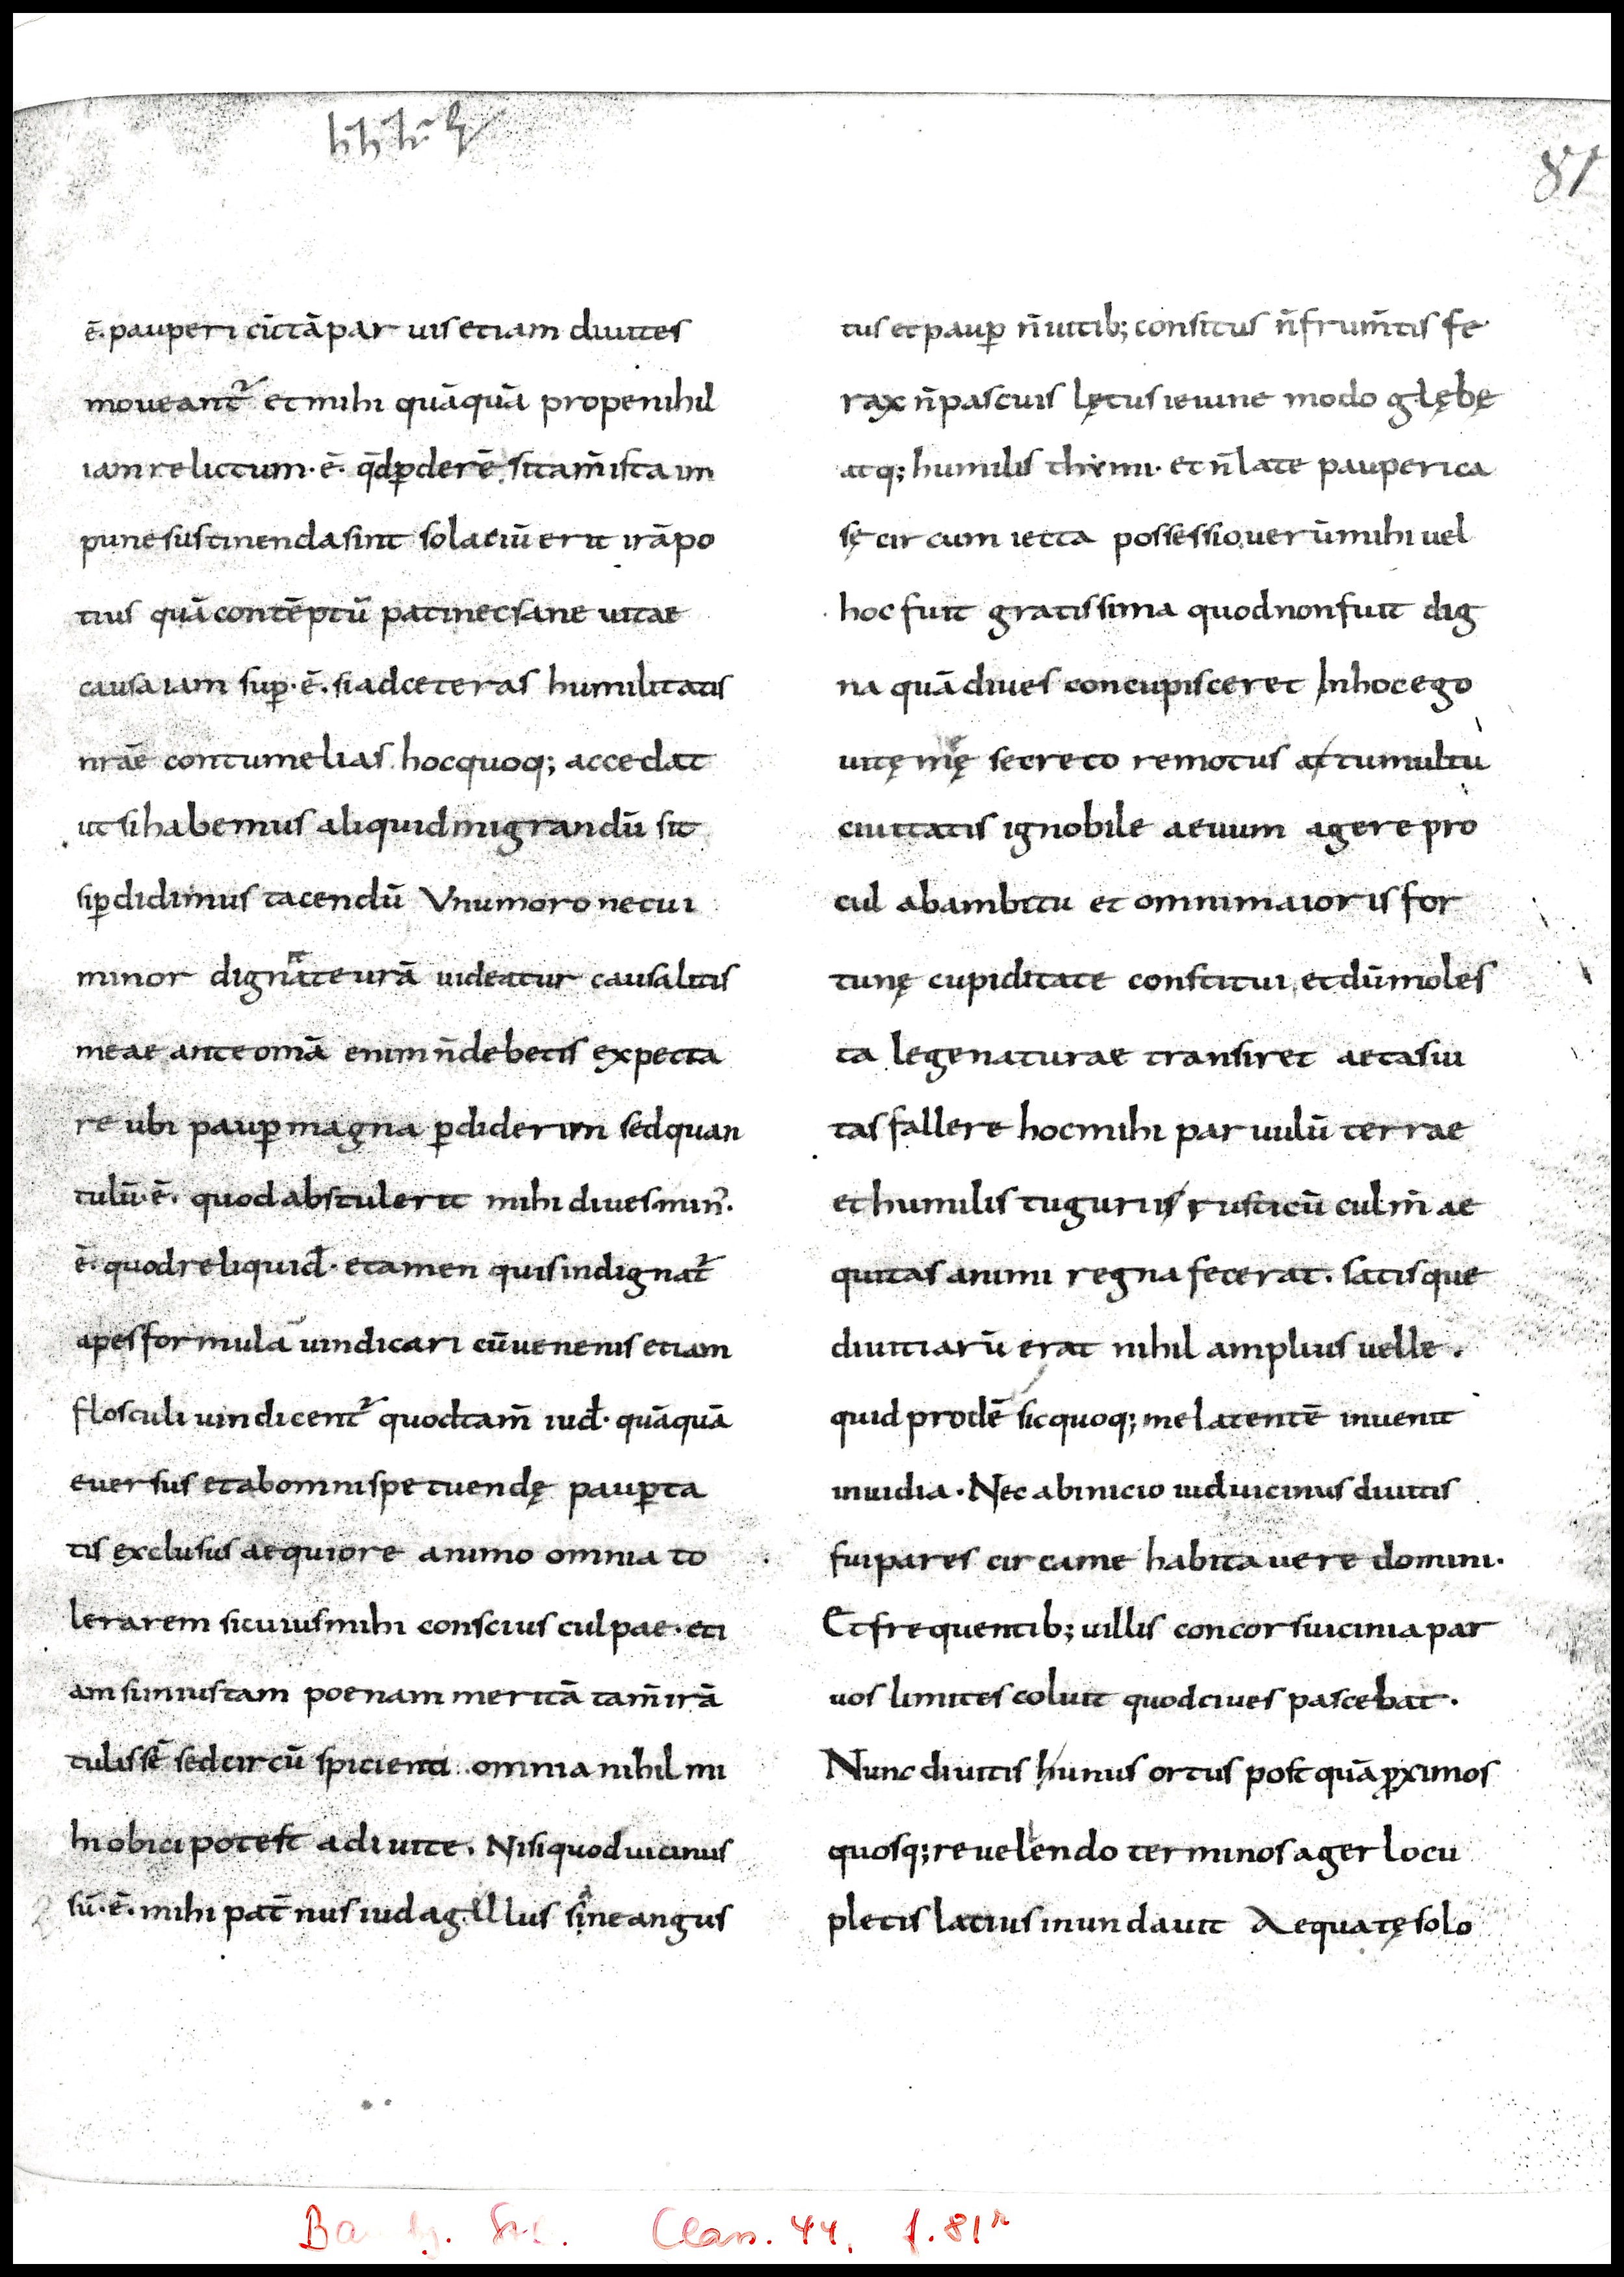 81
ē. pauperi cū tā par uis etiam diuites
moueant᷑ et mihi quāquā prope nihil
iam relictum · ē · qd̄ ꝑderē. si tam̄ ista im
pune sustinenda sint solaciū erit irā po
tius quā contēptū pati nec sane uitae
causa iam suꝑ · ē. si ad ceteras humilitatis
nrāe contumelias. hoc quoq; accedat
ut si habemus aliquid migrandū sit
si ꝑdidimus tacendū Vnum oro ne cui
minor dignate urā uideatur causa litis
meae ante omā enim n̄ debetis expecta
re ubi pauꝑ magna ꝑdiderim sed quan
tulū · ē. quod abstulerit mihi diues min᷑.
ē. quod reliquid̄ · et tamen quis indignat᷑
apes formula uindicari cū uenenis etiam
flosculi uindicent᷑ quod tam̄ iud̄. quāquā
euersus et ab omni spe tuendę pauꝑta
tis exclusus aequiore animo omnia to
lerarem si cuius mihi conscius culpae · eti
am si iniustam poenam meritā tam̄ irā
tulissē sed circū spicienti. omnia nihil mi
hi obici potest a diuite. Nisi quod uicinus
sū · ē. mihi pat̄nus iud agellus sine angus
tus et pauꝑ n̄ uitib; consitus n̄ frum̄tis fe
rax n̄ pascuis lętus ieiune modo glębę
atq; humilis thimi · et n̄ late pauperi ca
sę circum iecta possessio. uerū mihi uel
hoc fuit gratissima quod non fuit dig
na quā diues concupisceret In hoc ego
uitę mę secreto remotus at tumultu
ciuitatis ignobile aeuum agere pro
cul ab ambitu et omni maioris for
tunę cupiditate constitui. et dū moles
ta lege naturae transiret aetas ui
tas fallere hoc mihi paruulū terrae
et humilis tugurii rusticū culm̄ ae
quitas animi regna fecerat. satisque
diuitiarū erat nihil amplius uelle.
quid prodē sic quoq; me latentē inuenit
inuidia · Nec ab inicio iud uicinus diuitis
fui pares circa me habitauere domini.
Et frequentib; uillis concors uicinia par
uos limites coluit quod ciues pascebat.
Nunc diuitis hunus ortus post quā ꝓximos
quosq; reuelendo terminos ager locu
pletis latius inundauit Aequatę solo
Class. 44, f. 81r